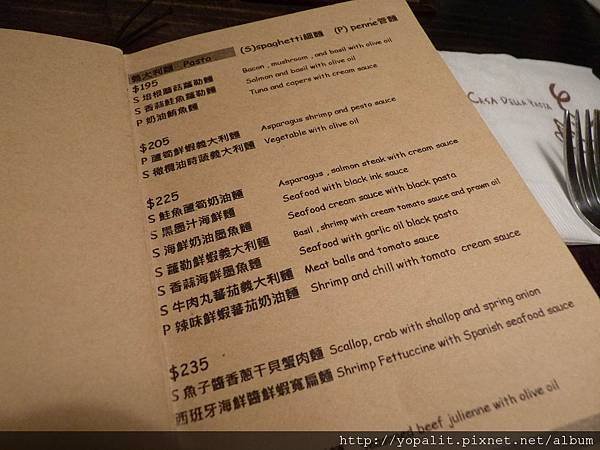 義大利麵 Pasta (S)spaghetti細麵 (P) penne管麵
$195
S 培根蘑菇蘿勒麵 Bacon , mushroom , and basil with olive oil
S 香蒜鮭魚蘿勒麵 Salmon and basil with olive oil
P 奶油鮪魚麵 Tuna and capers with cream sauce
$205
P 蘆筍鮮蝦義大利麵 Asparagus shrimp and pesto sauce
S 橄欖油時蔬義大利麵 Vegetable with olive oil
$225
S 鮭魚蘆筍奶油麵 Asparagus , salmon steak with cream sauce
S 黑墨汁海鮮麵 Seafood with black ink sauce
S 海鮮奶油墨魚麵 Seafood cream sauce with black pasta
S 蘿勒鮮蝦義大利麵 Basil , shrimp with cream tomato sauce and prawn oil
S 香蒜海鮮墨魚麵 Seafood with garlic oil black pasta
S 牛肉丸蕃茄義大利麵 Meat balls and tomato sauce
P 辣味鮮蝦蕃茄奶油麵 Shrimp and chill with tomato cream sauce
$235
S 魚子醬香蔥干貝蟹肉麵 Scallop, crab with shallop and spring onion
西班牙海鮮醬鮮蝦寬扁麵 Shrimp Fettuccine with Spanish seafood sauce
and beef julienne with olive oil
CASA DELLA PASTA
http://yopalit.pixnet.net/album